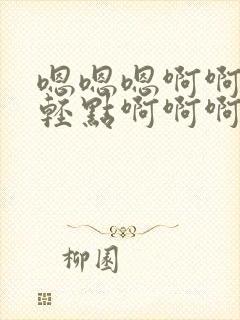 嗯嗯嗯啊啊
輕點啊啊啊
柳園